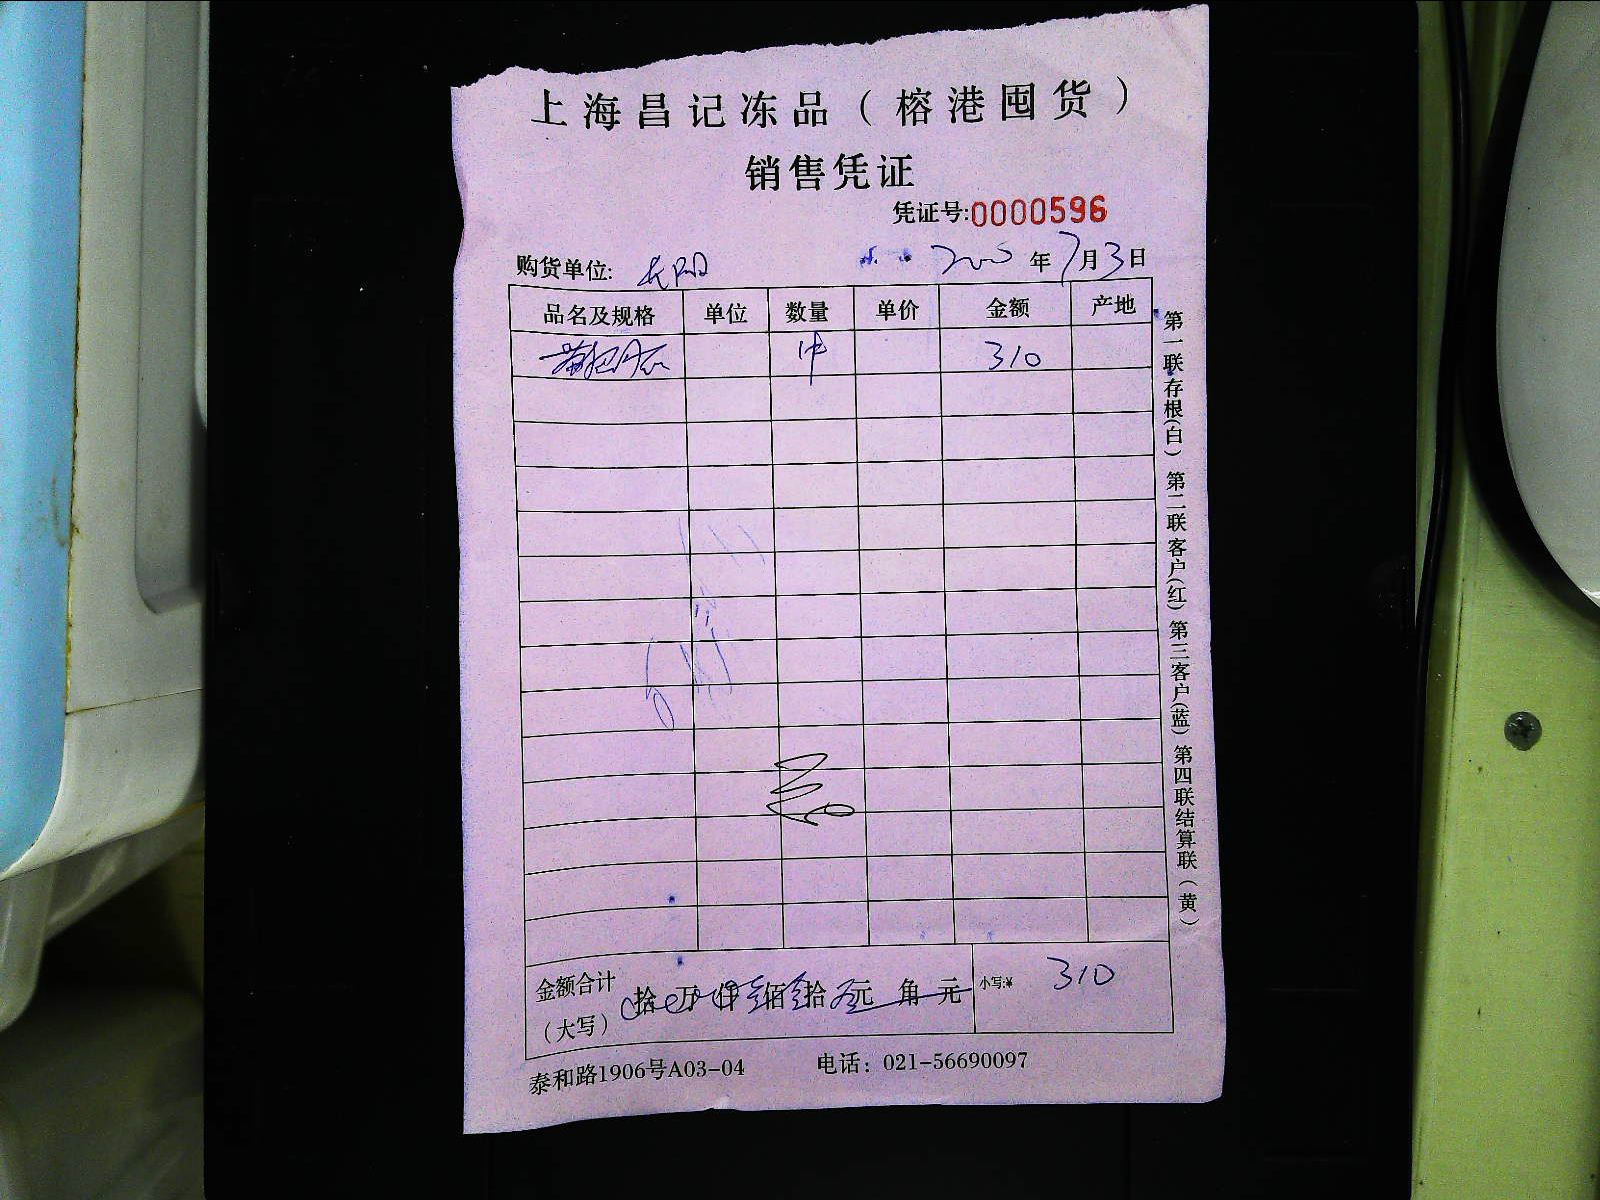 上海昌记冻品（榕港囤货）
销售凭证
凭证号:0000596
购货单位: 长阳 年7月3日
品名及规格 单位 数量 单价 金额 产地
1件 310
金额合计（大写） 拾 万 仟 佰 拾 元 角 元 小写:¥ 310
泰和路1906号A03-04 电话：021-56690097
第一联存根(白) 第二联客户(红) 第三客户(蓝) 第四联结算联（黄）